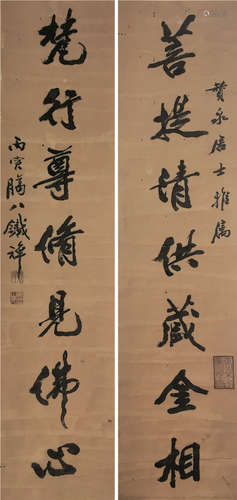 居士雅屬
菩提清供藏金相
梵行尊脩見佛心
丙寅臘八鐵禪